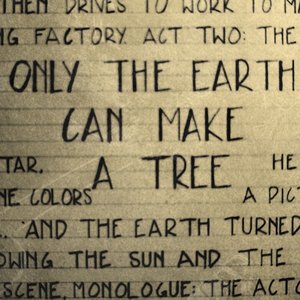 THEN DRIVES TO WORK TO
FACTORY. ACT TWO: THE
ONLY THE EARTH
CAN MAKE
A TREE
HE
COLORS A PIC
AND THE EARTH TURNED
THE SUN AND THE
SCENE, MONOLOGUE: THE